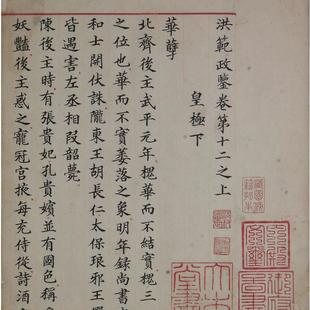 洪範政鑒卷第十二之上
皇極下
華孽
北齊後主武平元年槐華而不結實槐三
之位也華而不實萎落之象明年錄尚書
和士開伏誅隴東王胡長仁太保琅邪王
皆遇害左丞相段韶薨
陳後主時有張貴妃孔貴嬪並有國色稱
妖豔後主惑之寵冠宮掖每充侍從詩酒